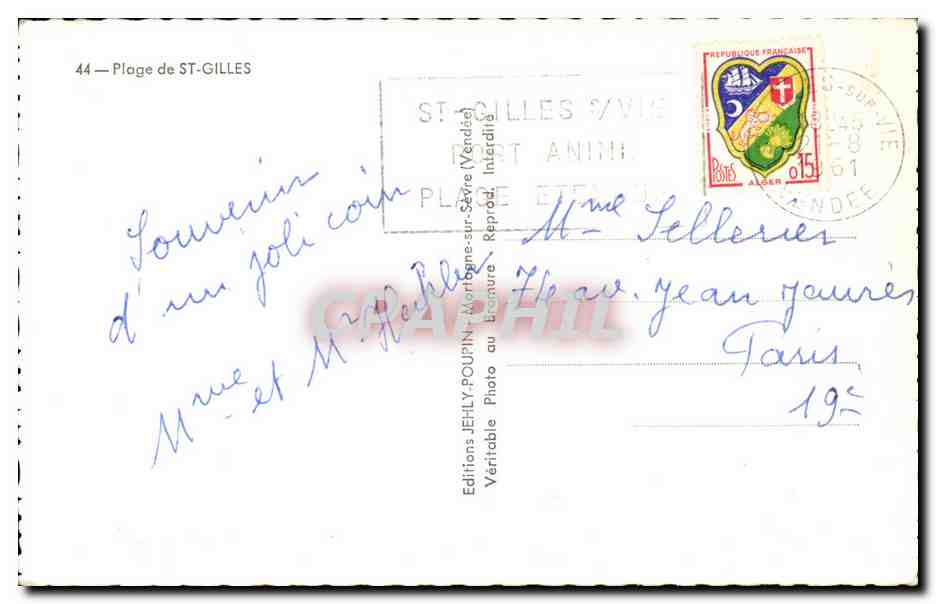 44 — Plage de ST-GILLES
ST-GILLES S/VIE
PORT ANIMÉ
PLAGE
RÉPUBLIQUE FRANÇAISE
POSTES
0,15
ALGER
-SUR-VIE
45
-8
1961
VENDÉE
Souvenir
d'un joli coin
Mme et Mr
Editions JEHLY-POUPIN - Mortagne-sur-Sèvre (Vendée)
Véritable Photo au Bromure - Reprod. Interdite
CRAPHIL
Mme Sellerier
71 av. Jean Jaurès
Paris
19e